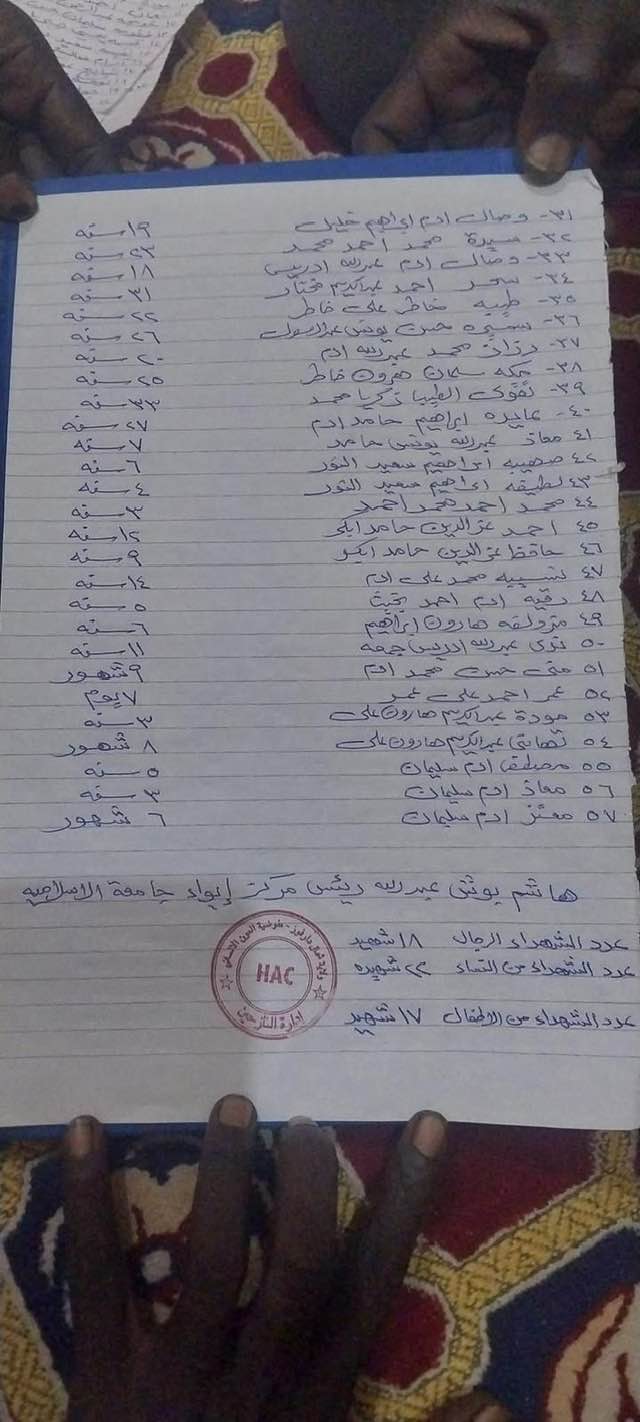 ٣١- وصال ادم ابراهيم خليل ١٩ سنه
٣٢- سيرة محمد احمد محمد ٢٣ سنه
٣٣- وصال ادم عبدالله ادريس ١٨ سنه
٣٤- سعد احمد عبدالكريم مختار ٣١ سنه
٣٥- طيبه خاطر علي خاطر ٢٢ سنه
٣٦- سميره حسن يونس عبدالرسول ٢٦ سنه
٣٧- رزان محمد عبدالله ادم ٢٠ سنه
٣٨- مكه سليمان هرون خاطر ٢٥ سنه
٣٩- تقوى الطيب زكريا محمد ٣٣ سنه
٤٠- عايده ابراهيم حامد ادم ٢٧ سنه
٤١ معاذ عبدالله يونس حامد ٧ سنه
٤٢ صهيبه ابراهيم سعيد النور ٦ سنه
٤٣ لطيفه ابراهيم سعيد النور ٤ سنه
٤٤ محمد احمد محمد احمد ٣ سنه
٤٥ احمد عزالدين حامد ابكر ١٢ سنه
٤٦ حافظ عزالدين حامد ابكر ٩ سنه
٤٧ نسيبه محمد علي ادم ١٤ سنه
٤٨ رقيه ادم احمد بخيت ٥ سنه
٤٩ هارون ابراهيم ٦ سنه
٥٠ عبدالله ادريس جمعه ١١ سنه
٥١ منى حسن محمد ادم ٩ شهور
٥٢ عمر احمد علي عمر ٧ يوم
٥٣ مودة عبدالكريم هارون علي ٣ سنه
٥٤ تهاني عبدالكريم هارون علي ٨ شهور
٥٥ مصطفى ادم سليمان ٥ سنه
٥٦ معاذ ادم سليمان ٣ سنه
٥٧ معتز ادم سليمان ٦ شهور
هاشم يونس عبدالله رئيس مركز إيواء جامعة الاسلاميه
عدد الشهداء الرجال ١٨ شهيد
عدد الشهداء من النساء ٢٢ شهيده
عدد الشهداء من الاطفال ١٧ شهيد
ولاية شمال دارفور - مفوضية العون الإنساني
HAC
إدارة النازحين